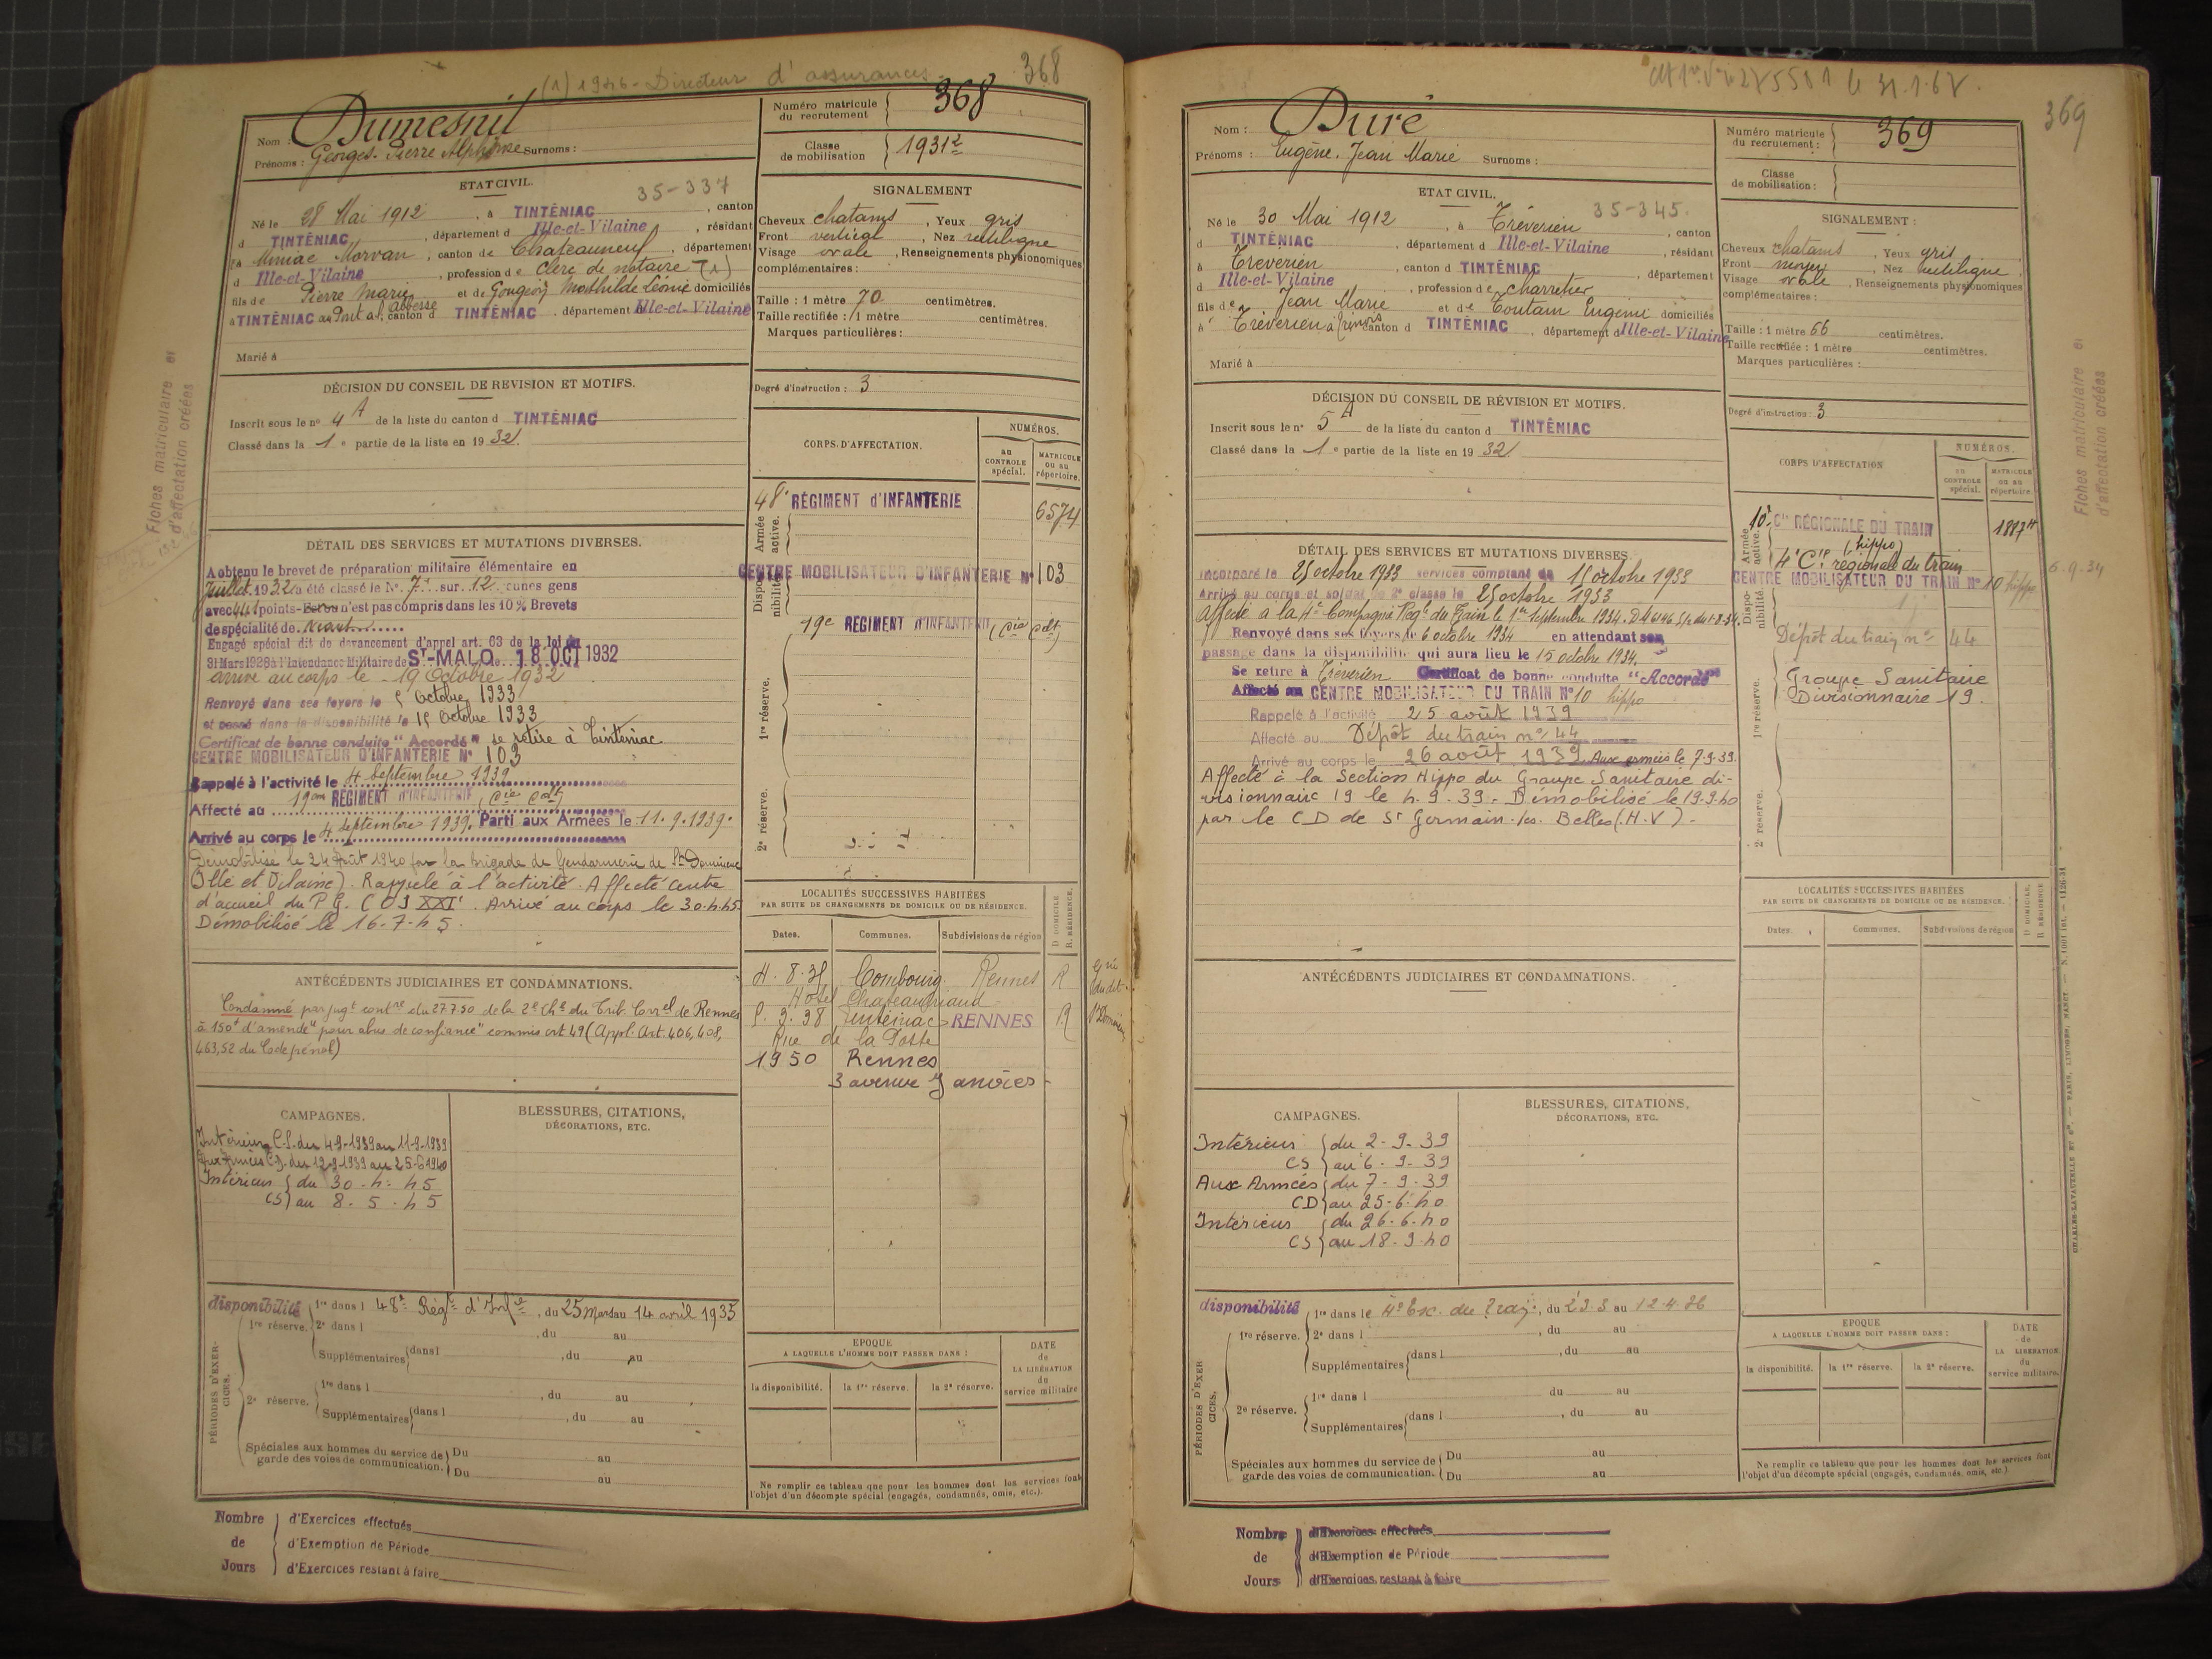 (1) 1946 - Directeur d'assurances
368
Nom : Dumesnil
Prénoms : Georges. Pierre Alphonse Surnoms :
Numéro matricule du recrutement 368
Classe de mobilisation 1931
ETAT CIVIL.
35-337
Né le 28 Mai 1912, à TINTÉNIAC, canton
d TINTÉNIAC, département d Ille-et-Vilaine, résidant
à Miniac Morvan, canton de Chateauneuf, département
d Ille-et-Vilaine, profession de Clerc de notaire (1)
fils de Pierre Marie et de Gougeon Mathilde Léonie domiciliés
à TINTÉNIAC au Pont al' Abbesse canton d TINTÉNIAC, département d Ille-et-Vilaine
Marié à
SIGNALEMENT
Cheveux chatains, Yeux gris
Front vertical, Nez rectiligne
Visage ovale, Renseignements physionomiques
complémentaires :
Taille : 1 mètre 70 centimètres.
Taille rectifiée : 1 mètre centimètres.
Marques particulières :
Degré d'instruction : 3
DÉCISION DU CONSEIL DE REVISION ET MOTIFS.
Inscrit sous le no 4 A de la liste du canton d TINTÉNIAC
Classé dans la 1e partie de la liste en 1932
CORPS D'AFFECTATION.
NUMÉROS.
au CONTROLE spécial.
MATRICULE ou au répertoire.
Armée active.
48e RÉGIMENT d'INFANTERIE
6574
Disponibilité
CENTRE MOBILISATEUR D'INFANTERIE No 103
19e RÉGIMENT D'INFANTERIE (Cie Cdt)
1re réserve.
2e réserve.
DÉTAIL DES SERVICES ET MUTATIONS DIVERSES.
A obtenu le brevet de préparation militaire élémentaire en
Juillet 1932 a été classé le No. 7 sur 12 jeunes gens
avec 441 points - n'est pas compris dans les 10 % Brevets
de spécialité de Néant
Engagé spécial dit de devancement d'appel art. 63 de la loi du
31 Mars 1928 à l'Intendance Militaire de ST-MALO le 18 OCT 1932
arrivé au corps le 19 Octobre 1932
Renvoyé dans ses foyers le 5 Octobre 1933
et passé dans la disponibilité le 15 Octobre 1933
Certificat de bonne conduite "Accordé" se retire à Tinténiac
CENTRE MOBILISATEUR D'INFANTERIE No 103
Rappelé à l'activité le 4 Septembre 1939
Affecté au 19em RÉGIMENT D'INFANTERIE (Cie Cdt)
Arrivé au corps le 4 Septembre 1939. Parti aux Armées le 11.9.1939.
Démobilisé le 24 Août 1940 par la brigade de Gendarmerie de St Domineuc
(Ille et Vilaine). Rappelé à l'activité. Affecté centre
d'accueil du P.G. COJ XXI. Arrivé au corps le 30.4.45
Démobilisé le 16-7-45.
ANTÉCÉDENTS JUDICIAIRES ET CONDAMNATIONS.
Condamné par jugt contre du 27.7.50 de la 2e Che du Trib. Correl de Rennes
à 150f d'amende "pour abus de confiance" commis ert 49 (Appl. Art. 406, 408,
463, 52 du Code pénal)
LOCALITÉS SUCCESSIVES HABITÉES
PAR SUITE DE CHANGEMENTS DE DOMICILE OU DE RÉSIDENCE.
Dates. Communes. Subdivisions de région D. DOMICILE R. RÉSIDENCE.
4.8.38 Combourg Rennes R
Hotel Chateaubriand
5.9.38 Tinténiac RENNES R
Rue de la Poste
1950 Rennes
3 avenue Janvier
CAMPAGNES.
Intérieur C.S. du 4-9-1939 au 11-9-1939
Aux Armées C.D. du 12-9-1939 au 25-6-1940
Intérieur du 30-4-45
CS au 8-5-45
BLESSURES, CITATIONS,
DÉCORATIONS, ETC.
PÉRIODES D'EXERCICES.
disponibilité 1re dans l 48e Régt d'Infie, du 25 Mars au 14 avril 1935
1re réserve. 2e dans l, du au
Supplémentaires dans l, du au
2e réserve. 1re dans l, du au
Supplémentaires dans l, du au
Spéciales aux hommes du service de garde des voies de communication. Du au
Du au
EPOQUE
A LAQUELLE L'HOMME DOIT PASSER DANS :
la disponibilité. la 1re réserve. la 2e réserve.
DATE de LA LIBÉRATION du service militaire
Ne remplir ce tableau que pour les hommes dont les services font
l'objet d'un décompte spécial (engagés, condamnés, omis, etc.).
Nombre de Jours
d'Exercices effectués
d'Exemption de Période
d'Exercices restant à faire
Fiches matriculaire et
d'affectation créées
369
Nom : Duré
Prénoms : Eugène. Jean Marie Surnoms :
Numéro matricule du recrutement : 369
Classe de mobilisation :
ETAT CIVIL.
35-345.
Né le 30 Mai 1912, à Tréverien, canton
d TINTÉNIAC, département d Ille-et-Vilaine, résidant
à Tréverien, canton d TINTÉNIAC, département
d Ille-et-Vilaine, profession de charretier
fils de Jean Marie et de Coutain Eugénie domiciliés
à Tréverien canton d TINTÉNIAC, département d Ille-et-Vilaine
Marié à
SIGNALEMENT :
Cheveux chatains, Yeux gris
Front moyen, Nez rectiligne
Visage ovale, Renseignements physionomiques
complémentaires :
Taille : 1 mètre 66 centimètres.
Taille rectifiée : 1 mètre centimètres.
Marques particulières :
Degré d'instruction : 3
DÉCISION DU CONSEIL DE RÉVISION ET MOTIFS.
Inscrit sous le no 5 A de la liste du canton d TINTÉNIAC
Classé dans la 1e partie de la liste en 1932
CORPS D'AFFECTATION
NUMÉROS.
AU CONTROLE spécial.
MATRICULE ou au répertoire.
Armée active.
10e Cie RÉGIONALE DU TRAIN
(hippo)
4e Cie régionale du train
CENTRE MOBILISATEUR DU TRAIN No 10 hippo
6.9.34
Disponibilité.
Dépôt du train no 44
Groupe Sanitaire
Divisionnaire 19.
1re réserve.
2e réserve.
DÉTAIL DES SERVICES ET MUTATIONS DIVERSES.
Incorporé le 25 octobre 1933 services comptant du 15 octobre 1933
Arrivé au corps et soldat de 2e classe le 25 octobre 1933
Affecté à la 4e Compagnie Rég. du Train le 1er Septembre 1934.
Renvoyé dans ses foyers le 6 octobre 1934 en attendant son
passage dans la disponibilité qui aura lieu le 15 octobre 1934.
Se retire à Tréverien Certificat de bonne conduite "Accordé"
Affecté au CENTRE MOBILISATEUR DU TRAIN No 10 hippo
Rappelé à l'activité 25 août 1939
Affecté au Dépôt du train no 44
Arrivé au corps le 26 août 1939. Aux armées le 7-9-39.
Affecté à la Section Hippo du Groupe Sanitaire di-
visionnaire 19 le 4.9.39. Démobilisé le 19.9.40
par le CD de St Germain-les-Belles (H.V).
ANTÉCÉDENTS JUDICIAIRES ET CONDAMNATIONS.
LOCALITÉS SUCCESSIVES HABITÉES
PAR SUITE DE CHANGEMENTS DE DOMICILE OU DE RÉSIDENCE.
Dates. Communes. Subdivisions de région D. DOMICILE. R. RÉSIDENCE
CAMPAGNES.
Intérieur du 2-9-39
CS au 6-9-39
Aux Armées du 7-9-39
CD au 25-6-40
Intérieur du 26-6-40
CS au 18-9-40
BLESSURES, CITATIONS,
DÉCORATIONS, ETC.
PÉRIODES D'EXERCICES.
disponibilité 1re dans le 4e Esc. du Train, du 23.3 au 12.4.36
1re réserve. 2e dans l, du au
Supplémentaires dans l, du au
2e réserve. 1re dans l du au
Supplémentaires dans l, du au
Spéciales aux hommes du service de garde des voies de communication. Du au
Du au
EPOQUE
A LAQUELLE L'HOMME DOIT PASSER DANS :
la disponibilité. la 1re réserve. la 2e réserve.
DATE de LA LIBÉRATION du service militaire.
Ne remplir ce tableau que pour les hommes dont les services font
l'objet d'un décompte spécial (engagés, condamnés, omis, etc.)
Nombre de Jours
d'Exercices effectués
d'Exemption de Période
d'Exercices restant à faire
Fiches matriculaire et
d'affectation créées